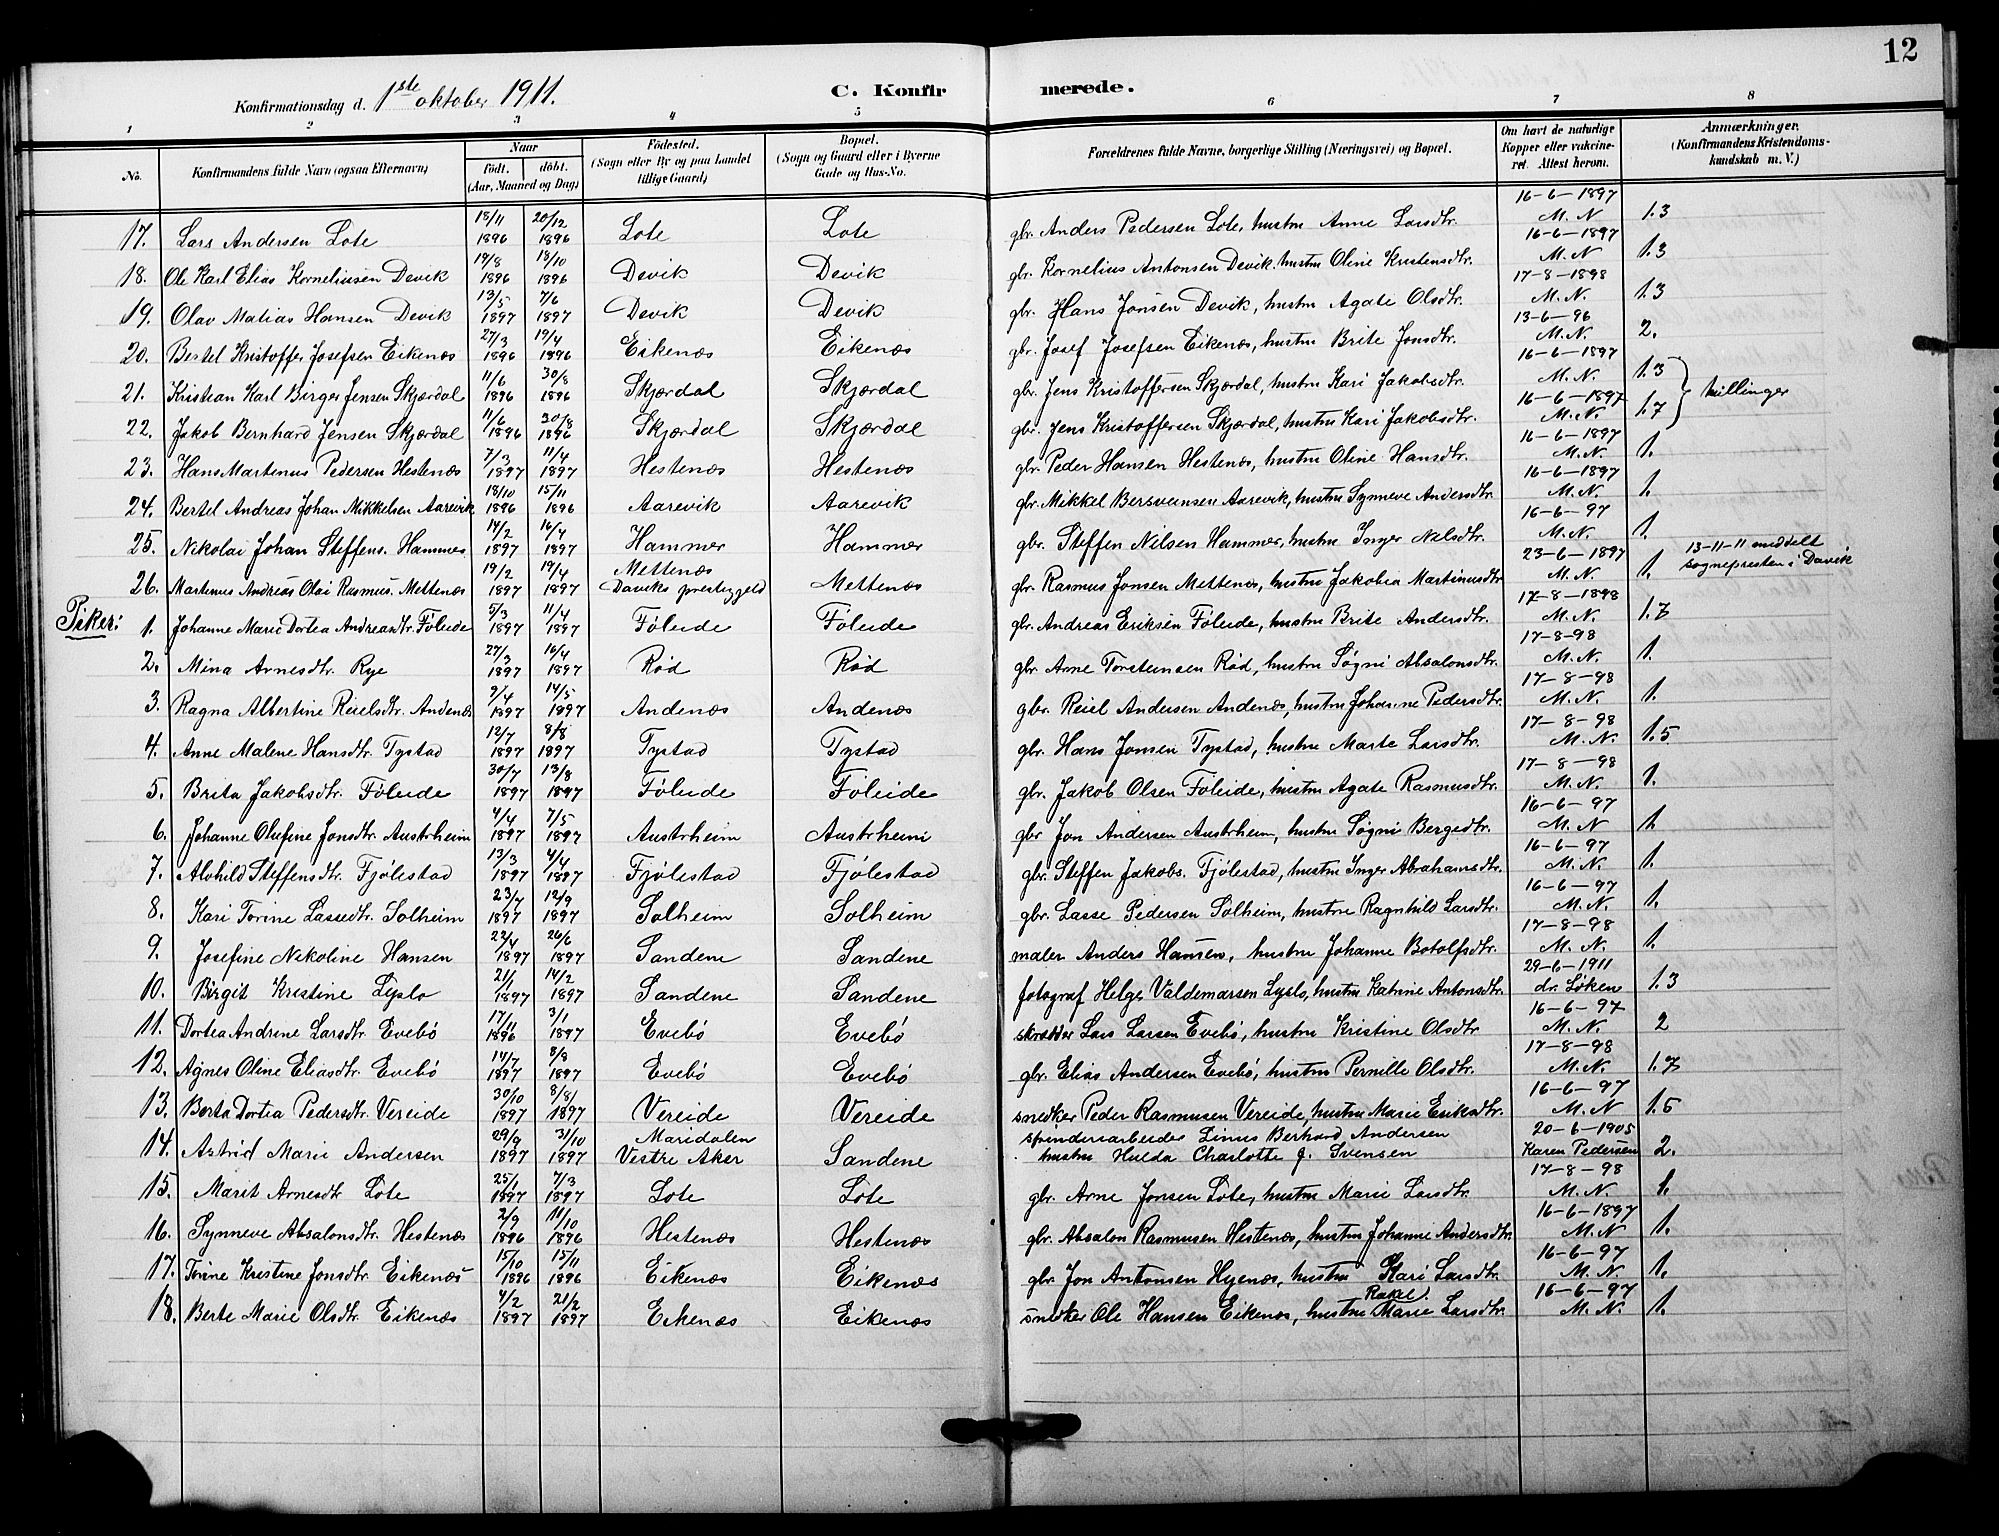 12
Konfirmationsdag d. 1ste oktober 1911. C. Konfirmerede.
1 2 3 4 5 6 7 8
No. Konfirmandens fulde Navn (ogsaa Efternavn) Naar födt. döbt. (Aar, Maaned og Dag) Födested. (Sogn eller By og paa Landet tillige Gaard) Bopæl. (Sogn og Gaard eller i Byerne Gade og Hus-No. Forældrenes fulde Navne, borgerlige Stilling (Næringsvei) og Bopæl. Om havt de naturlige Kopper eller vakcineret. Attest herom. Anmærkninger. (Konfirmandens Kristendomskundskab m. V.)
17. Lars Andersen Lote 18/11 1896 20/12 1896 Lote Lote gbr. Anders Pedersen Lote, hustru Anne Larsdtr. 16-6-1897 M.N 1.3
18. Ole Karl Elias Korneliussen Devik 19/8 1896 18/10 1896 Devik Devik gbr. Kornelius Antonsen Devik, hustru Oline Kristensdtr. 16-6-1897 M.N 1.3
19. Olav Matias Hansen Devik 13/5 1897 7/6 1897 Devik Devik gbr. Hans Jonsen Devik, hustru Agate Olsdtr. 17-8-1898 M.N. 1.3
20. Bertel Kristoffer Josefsen Eikenæs 27/3 1896 19/4 1896 Eikenæs Eikenæs gbr. Josef Josefsen Eikenæs, hustru Brite Jonsdtr. 13-6-96 M.N. 2.
21. Kristian Karl Birger Jensen Skjærdal 11/6 1896 30/8 1896 Skjærdal Skjærdal gbr. Jens Kristoffersen Skjærdal, hustru Kari Jakobsdtr. 16-6-1897 M.N. 1.3 } tvillinger
22. Jakob Bernhard Jensen Skjærdal 11/6 1896 30/8 1896 Skjærdal Skjærdal gbr. Jens Kristoffersen Skjærdal, hustru Kari Jakobsdtr. 16-6-1897 M.N. 1.7
23. Hans Martinus Pedersen Hestenæs 7/3 1897 11/4 1897 Hestenæs Hestenæs gbr. Peder Hansen Hestenæs, hustru Oline Hansdtr. 16-6-1897 M.N. 1.
24. Bertel Andreas Johan Mikkelsen Aarevik 18/10 1896 15/11 1896 Aarevik Aarevik gbr. Mikkel Bersveinsen Aarevik, hustru Synneve Andersdtr. 16-6-1897 M.N. 1.
25. Nikolai Johan Steffens. Hammer 14/2 1897 16/4 1897 Hammer Hammer gbr. Steffen Nilsen Hammer, hustru Inger Nilsdtr. 16-6-97 M.N. 1.
26. Martinus Andreas Olai Rasmus. Mettenæs 19/2 1897 19/4 1897 Mettenæs Daviks prestegjeld Mettenæs gbr. Rasmus Jonsen Mettenæs, hustru Jakobia Martinusdtr 23-6-1897 M.N. 1. 13-11-11 meddelt sognepresten i Davik
Piker:
1. Johanne Marie Dortea Andreasdtr. Föleide 5/3 1897 11/4 1897 Föleide Föleide gbr. Andreas Eriksen Föleide, hustru Brite Andersdtr. 17-8-1898 M.N. 1.7
2. Mina Arnesdtr. Rye 27/3 1897 16/4 1897 Rød Rød gbr. Arne Torsteinsen Rød, hustru Søgni Absalonsdtr. 17-8-98 M.N. 1.
3. Ragna Albertine Reielsdtr. Andenæs 9/4 1897 14/5 1897 Andenæs Andenæs gbr. Reiel Andersen Andenæs, hustru Johanne Pedersdtr. 17-8-98 M.N. 1.
4. Anne Malene Hansdtr. Tystad 12/7 1897 8/8 1897 Tystad Tystad gbr. Hans Jonsen Tystad, hustru Marte Larsdtr. 17-8-98 M.N. 1.5
5. Brita Jakobsdtr. Föleide 30/7 1897 13/8 1897 Föleide Föleide gbr. Jakob Olsen Föleide, hustru Agate Rasmusdtr. 17-8-98 M.N. 1.
6. Johanne Olufine Jonsdtr. Austrheim 4/4 1897 7/5 1897 Austrheim Austrheim gbr. Jon Andersen Austrheim, hustru Søgni Bergedtr. 16-6-97 M.N 1.
7. Alvhild Steffensdtr. Fjølestad 13/3 1897 4/4 1897 Fjølestad Fjølestad gbr. Steffen Jakobs. Fjølestad, hustru Inger Abrahamsdtr. 16-6-97 M.N. 1.
8. Kari Torine Lassedtr. Solheim 23/7 1897 12/9 1897 Solheim Solheim gbr. Lasse Pedersen Solheim, hustru Ragnhild Larsdtr. 16-6-97 M.N. 1.
9. Josefine Nikoline Hansen 22/4 1897 26/6 1897 Sandene Sandene maler Anders Hansen, hustru Johanne Botolfsdtr. 17-8-98 M.N. 1.
10. Birgit Kristine Lyslo 21/1 1897 14/2 1897 Sandene Sandene fotograf Helge Valdemarsen Lyslo, hustru Katrine Antonsdtr. 29-6-1911 dr. Løken 1.3
11. Dortea Andrine Larsdtr. Evebö 17/11 1896 3/1 1897 Evebö Evebö skrædder Lars Larsen Evebö, hustru Kristine Olsdtr 16-6-97 M.N. 2
12. Agnes Oline Eliasdtr. Evebö 14/7 1897 8/8 1897 Evebö Evebö gbr. Elias Andersen Evebö, hustru Pernille Olsdtr. 17-8-98 M.N. 1.7
13. Berta Dortea Pedersdtr. Vereide 30/10 1897 8/8 1897 Vereide Vereide snedker Peder Rasmusen Vereide, hustru Marie Eriksdtr. 16-6-97 M.N 1.5
14. Astrid Marie Andersen 29/9 1897 31/10 1897 Maridalen Vestre Aker Sandene spinderiarbeider Linus Berhard Andersen hustru Hulda Charlotte f. Svensen 20-6-1905 Karen Pedersen 2.
15. Marit Arnesdtr Lote 25/1 1897 7/3 1897 Lote Lote gbr. Arne Jonsen Lote, hustru Marie Larsdtr. 17-8-98 M.N. 1.
16. Synneve Absalonsdtr. Hestenæs 2/9 1896 11/10 1896 Hestenæs Hestenæs gbr. Absalon Rasmusen Hestenæs, hustru Johanne Andersdtr. 16-6-1897 M.N 1.
17. Torine Kristine Jonsdtr. Eikenæs 15/10 1896 15/11 1896 Eikenæs Eikenæs gbr. Jon Antonsen Hyenæs, hustru Kari Larsdtr. 16-6-97 M.N. 1.
18. Berte Marie Olsdtr. Eikenæs 4/2 1897 21/2 1897 Eikenæs Eikenæs snedker Ole Hansen Eikenæs, hustru Rakel Marie Larsdtr. 16-6-97 M.N. 1.